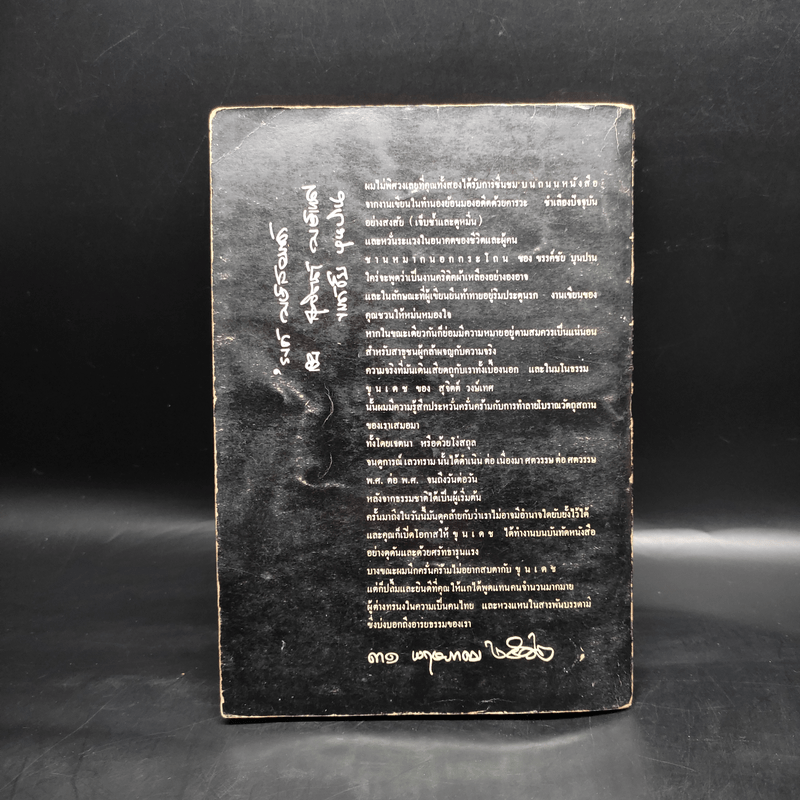 ผมไม่พิศวงเลยที่คุณทั้งสองได้รับการชื่นชม บนถนนหนังสือ
จากงานเขียนในทำนองย้อนมองอดีตด้วยคารวะ ชำเลืองปัจจุบัน
อย่างสงสัย (เจ็บช้ำและดูหมิ่น)
และหวั่นระแวงในอนาคตของชีวิตและผู้คน
ชานหมากนอกกระโถน ของ ขรรค์ชัย บุนปาน
ใคร่จะพูดว่าเป็นงานคริติคผ้าเหลืองอย่างองอาจ
และในลักษณะที่ผู้เขียนยืนท้าทายอยู่ริมประตูนรก งานเขียนของ
คุณชวนให้หม่นหมองใจ
หากในขณะเดียวกันก็ย่อมมีความหมายอยู่ตามสมควรเป็นแน่นอน
สำหรับสาธุชนผู้กล้าผจญกับความจริง
ความจริงที่มันเดินเสียดถูกับเราทั้งเบื้องนอก และในมโนธรรม
ขุนเดช ของ สุจิตต์ วงษ์เทศ
นั้นผมมีความรู้สึกประหวั่นครั่นคร้ามกับการทำลายโบราณวัตถุสถาน
ของเราเสมอมา
ทั้งโดยเจตนา หรือด้วยโง่สถุล
จนดูการณ์เลวทราม นั้นได้ดำเนิน ต่อ เนื่องมา ศตวรรษ ต่อ ศตวรรษ
พ.ศ. ต่อ พ.ศ. จนถึงวันต่อวัน
หลังจากธรรมชาติได้เป็นผู้เริ่มต้น
ครั้นมาถึงในวันนี้มันดูคล้ายกับว่าเราไม่อาจมีอำนาจใดยับยั้งไว้ได้
และคุณก็เปิดโอกาสให้ ขุนเดช ได้ทำงานบนบันทัดหนังสือ
อย่างดุดันและด้วยศรัทธารุนแรง
บางขณะผมนึกครั่นคร้ามไม่อยากสบตากับ ขุนเดช
แต่ก็ปลื้มและยินดีที่คุณให้แกได้พูดแทนคนจำนวนมากมาย
ผู้ต่างทรนงในความเป็นคนไทย และหวงแหนในสารพันบรรดามี
ซึ่งบ่งบอกถึงอารยธรรมของเรา
๓๑ พฤษภาคม
'รงค์ วงษ์สวรรค์
สุจิตต์ วงษ์เทศ
ขรรค์ชัย บุนปาน